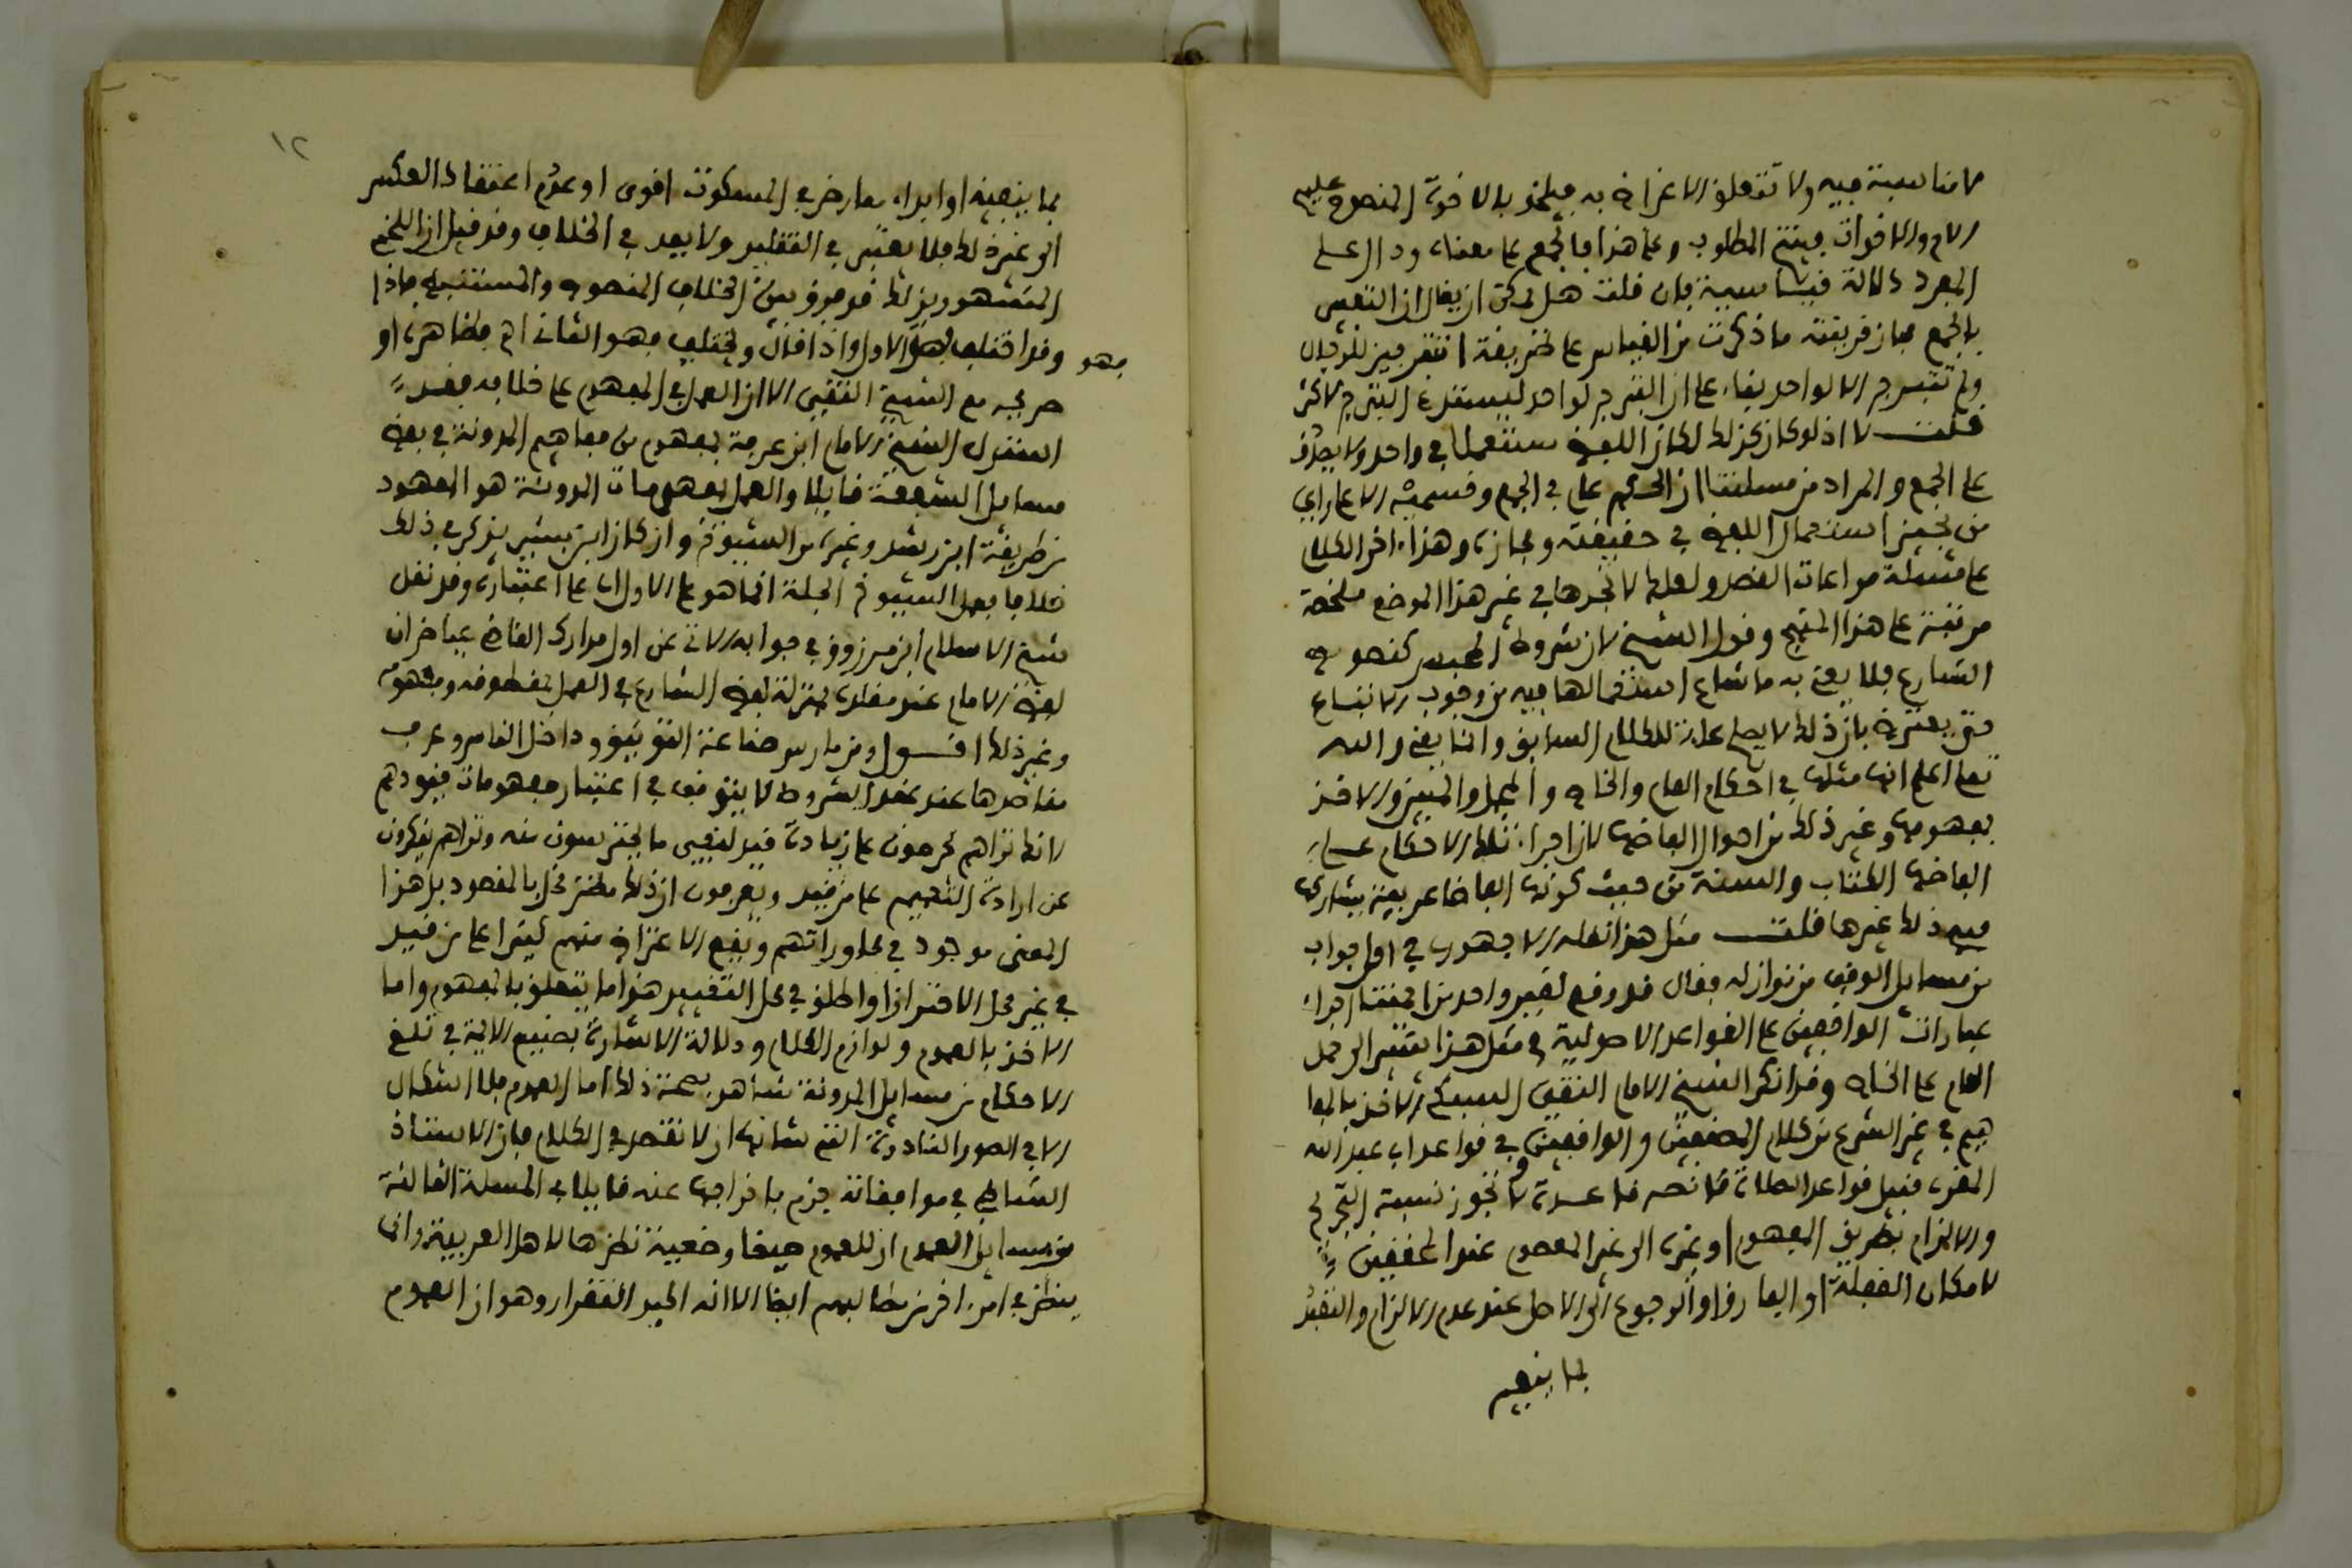 لا مناسبة فيه ولا تتعلق الاغراض به فيلحق بالاخوة المنصوص عليهم
الام والاخوات فينتج المطلوب وعلى هذا فالجمع على معناه ودال على
المفرد دلالة قياسية فان قلت هل يمكن ان يقال ان التعبير
بالجمع مجاز قرينته ما ذكرت من القياس على طريقة
ولم تتبرج الا لواحد بقاء على ان التبرج لواحد يستلزم التبرج لاكثر
قلت لا اذ لو كان كذلك لكان اللفظ مستعملا في واحد ولا يصدق
على الجمع والمراد من مسئلتنا ان الحكم على في الجمع وقسميه الا على راي
من يجيز استعمال اللفظ في حقيقته ومجازه وهذا اخر الكلام
على مسئلة مراعات القصد ولعلك لا تجدها في غير هذا الموضع ملخصة
مرتبة على هذا المنهج وقول الشيخ لان شروط المحبس كنصوص
الشارع فلا يعنى به ما شاع استعمالها فيه من وجوب الاتباع
حتى يعترض بان ذلك لا يصلح علة للكلام السابق وانما يعني والله
تعلى اعلم انها مثلها في احكام العام والخاص والمجمل والمبين والاخذ
بمفهومها وغير ذلك من احوال الفاظها لان اجراء تلك الاحكام على
الفاظ الكتاب والسنة من حيث كونها الفاظا عربية يشاركها
فيه ذلك غيرها قلت مثل هذا نقله الاجهوري في اول جواب
من مسايل الوقف من نوازله فقال قد وقع لغير واحد من ايمتنا اجراء
عبارات الواقفين على القواعد الاصولية في مثل هذا يشير الى حمل
العام على الخاص وقد انكر الشيخ الامام التقي السبكي الاخذ بالمفا
هيم في غير الشرع من كلام المصنفين والواقفين وفي قواعد ابي عبد الله
المقري قبيل قواعد الصلاة ما نصه قاعدة لا يجوز نسبة التخريج
والالزام بطريق المفهوم او غيره الى غير المعصوم عند المحققين
لامكان الغفلة او الفارق او الرجوع الى الاصل عند عدم الالزام والتقيد
بما ينفيه
١٢
بما ينفيه او ابداء معارض في المسكوت اقوى او عدم اعتقاد العكس
الى غير ذلك فلا يعتبر في التقليد ولا يعد في الخلاف وقد قيل ان اللخمي
المشهور بذلك قد فرق بين الخلاف المنصوص والمستنبط فاذا
فهو
وقد اختلف فهو الاول واذا قال ويختلف فهو الثاني اهـ فظاهره او
صريحه مع الشيخ التقي الا ان العمل في المفهوم على خلافه فقد
استدل الشيخ الامام ابن عرفة بمفهوم من مفاهيم المدونة في بعض
مسايل الشفعة قايلا والعمل بمفهومات المدونة هو المعهود
من طريقة ابن رشد وغيره من الشيوخ وان كان ابن بشير يذكر في ذلك
خلافا فعمل الشيوخ في الجملة انما هو على الاول اي على اعتباره وقد نقل
شيخ الاسلام ابن مرزوق في جوابه الاتي عن اول مدارك القاضي عياض ان
لفظ الامام عند مقلده بمنزلة لفظ الشارع في العمل بمنطوقه ومفهومه
وغير ذلك اقول ومن مارس صناعة التوثيق وداخل الناس وعرف
مقاصدها عند عقد الشروط لا يتوقف في اعتبار مفهومات قيودهم
لانك تراهم يحرصون على زيادة قيد لنفي ما يحترسون منه وتراهم ينكرون
عن ارادة التعميم على من قيد ويعرفون ان ذلك مضر مخل بالمقصود بل هذا
المعنى موجود في محاوراتهم ويقع الاعتراض منهم كثيرا على من قيد
في غير محل الاحتراز او اطلق في محل التقييد هذا ما يتعلق بالمفهوم واما
الاخذ بالعموم ولوازم الكلام ودلالة الاشارة فصنيع الايمة في تلقي
الاحكام من مسايل المدونة شاهد بصحة ذلك اما العموم فلا اشكال
الا في الصور النادرة التي شانها ان لا تقصد في الكلام فان الاستاذ
الشاطبي في موافقاته جزم باخراجها عنه قايلا في المسئلة الثالثة
من مسايل العموم ان للعموم صيغا وضعية نظرها لاهل العربية وانما
ينظر في امر اخر من مطالبهم ايضا الا انه اكيد التقرار وهو ان العموم